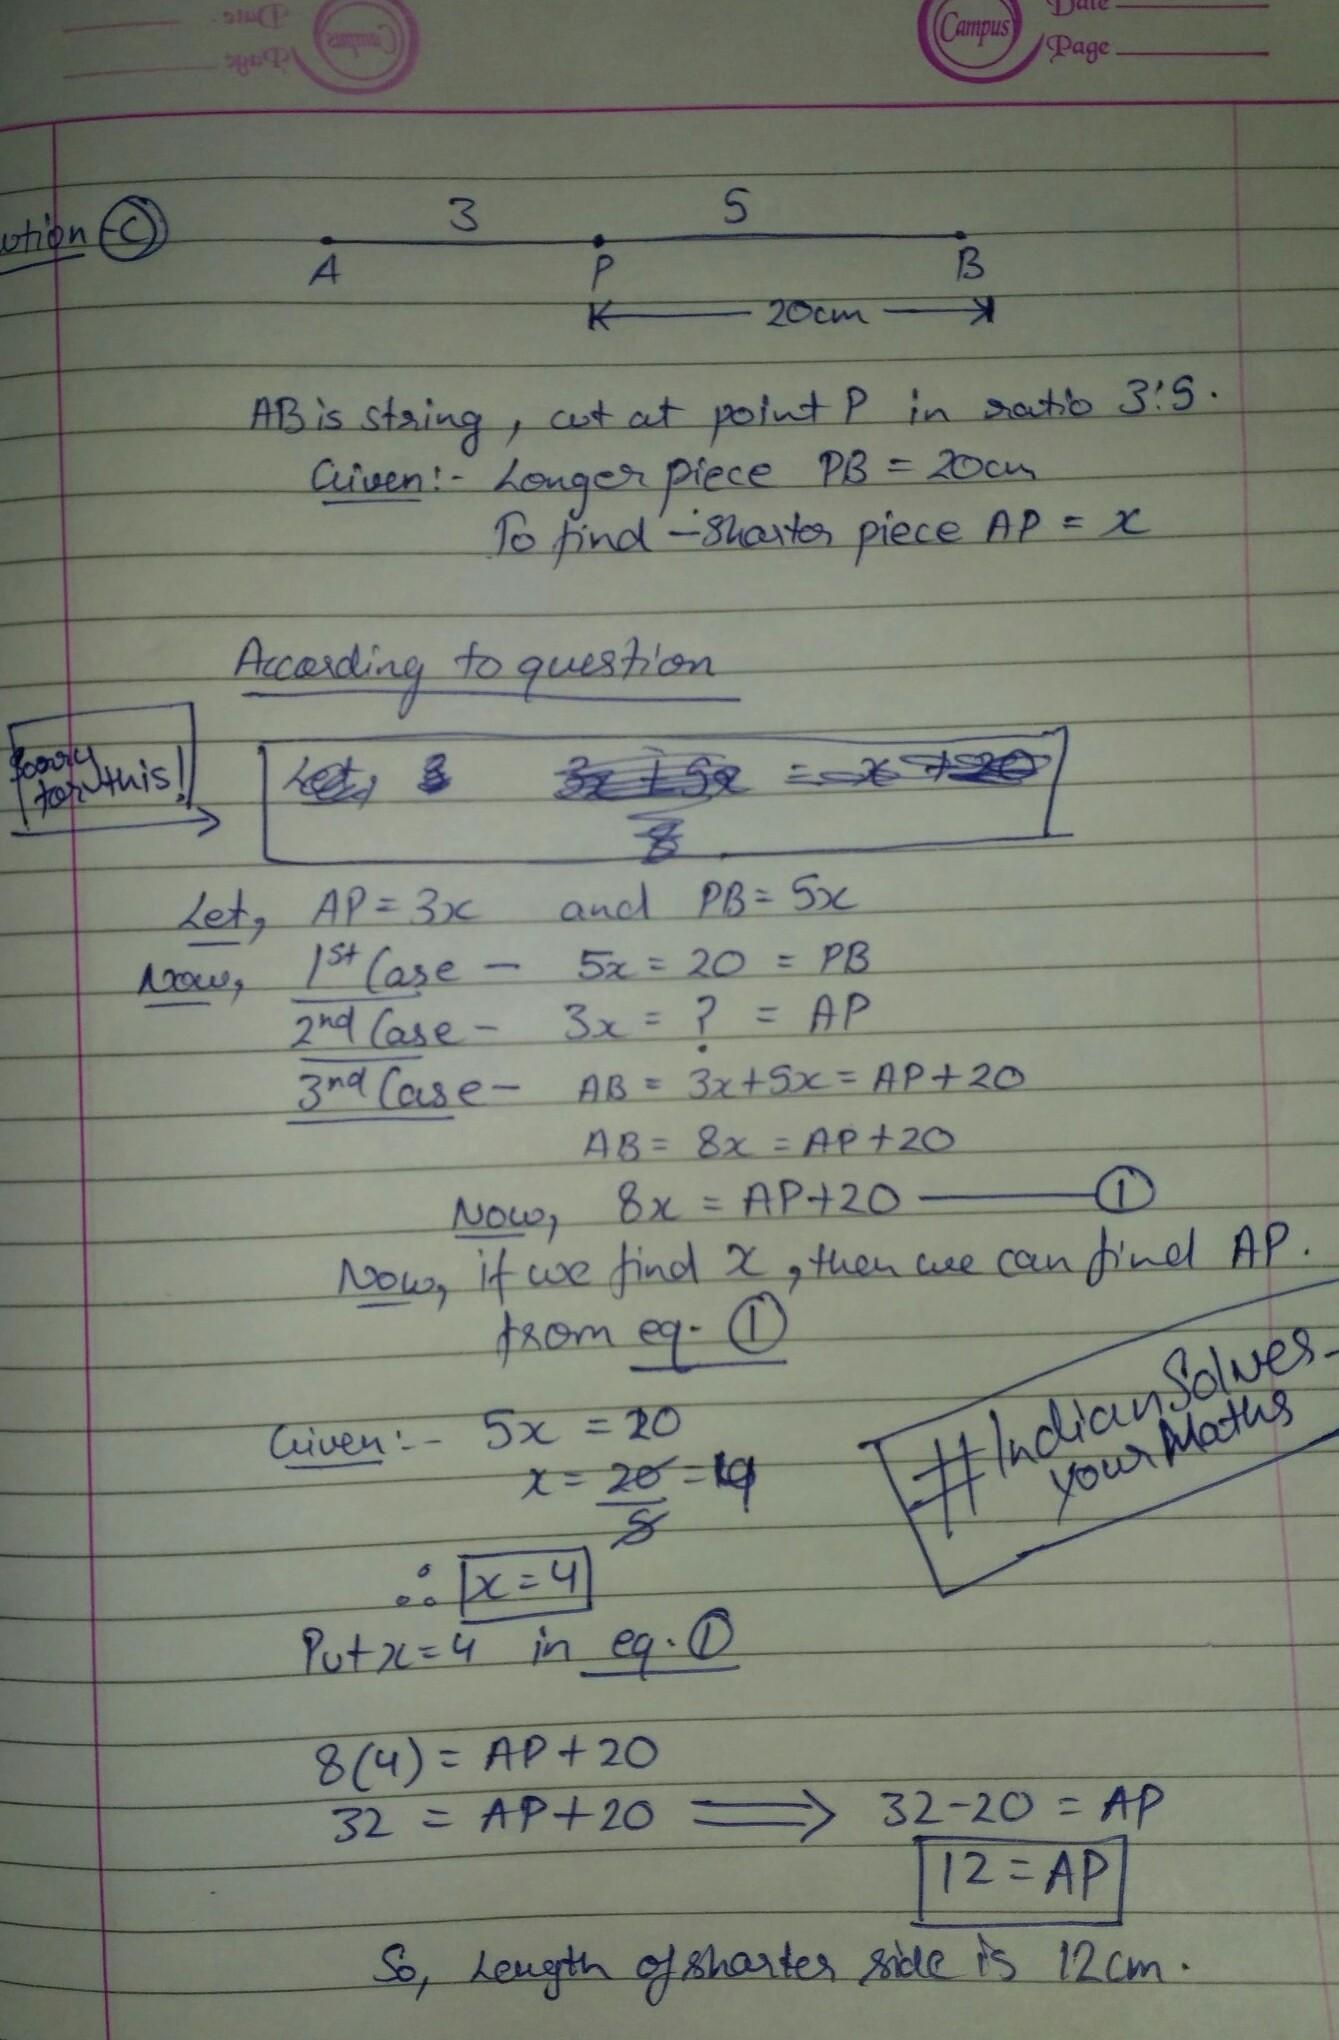 Campus
Date
Page
Campus
Date
Page
ution (C)
3 5
A P B
20cm
AB is string, cut at point P in ratio 3:5.
Given:- Longer piece PB = 20cm
To find - Shorter piece AP = x
According to question
Sorry for this!
Let, 3x + 5x = x + 20
8
Let, AP = 3x and PB = 5x
Now, 1st Case - 5x = 20 = PB
2nd Case - 3x = ? = AP
3nd Case - AB = 3x+5x = AP+20
AB = 8x = AP+20
Now, 8x = AP+20 ——— ①
Now, if we find x, then we can find AP.
from eq. ①
#IndianSolves-
yourMaths
Given:- 5x = 20
x = 20/5 = 4
∴ x = 4
Put x = 4 in eq. ①
8(4) = AP + 20
32 = AP + 20 ⟹ 32-20 = AP
12 = AP
So, Length of shorter side is 12cm.